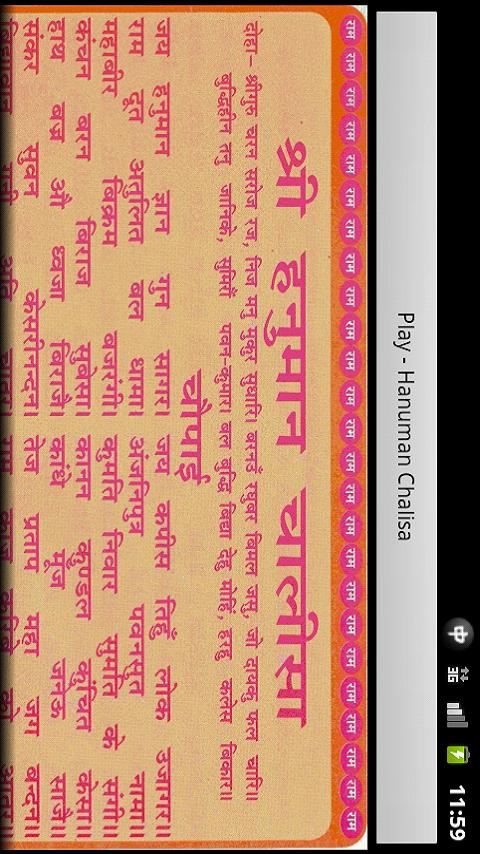 3G 11:59
Play - Hanuman Chalisa
राम राम राम राम राम राम राम राम राम राम राम राम राम राम राम राम राम राम राम राम राम राम राम राम राम
श्री हनुमान चालीसा
दोहा– श्रीगुरु चरन सरोज रज, निज मनु मुकुर सुधारि। बरनउं रघुबर बिमल जसु, जो दायकु फल चारि॥
बुद्धिहीन तनु जानिके, सुमिरौं पवन-कुमार। बल बुद्धि विद्या देहु मोहिं, हरहु कलेस विकार॥
चौपाई
जय हनुमान ज्ञान गुन सागर। जय कपीस तिहुं लोक उजागर॥
राम दूत अतुलित बल धामा। अंजनिपुत्र पवनसुत नामा॥
महाबीर विक्रम बजरंगी। कुमति निवार सुमति के संगी॥
कंचन बरन विराज सुबेसा। कानन कुण्डल कुंचित केसा॥
हाथ बज्र औ ध्वजा विराजे। कांधे मूंज जनेऊ साजे॥
संकर सुवन केसरीनन्दन। तेज प्रताप महा जग बन्दन॥